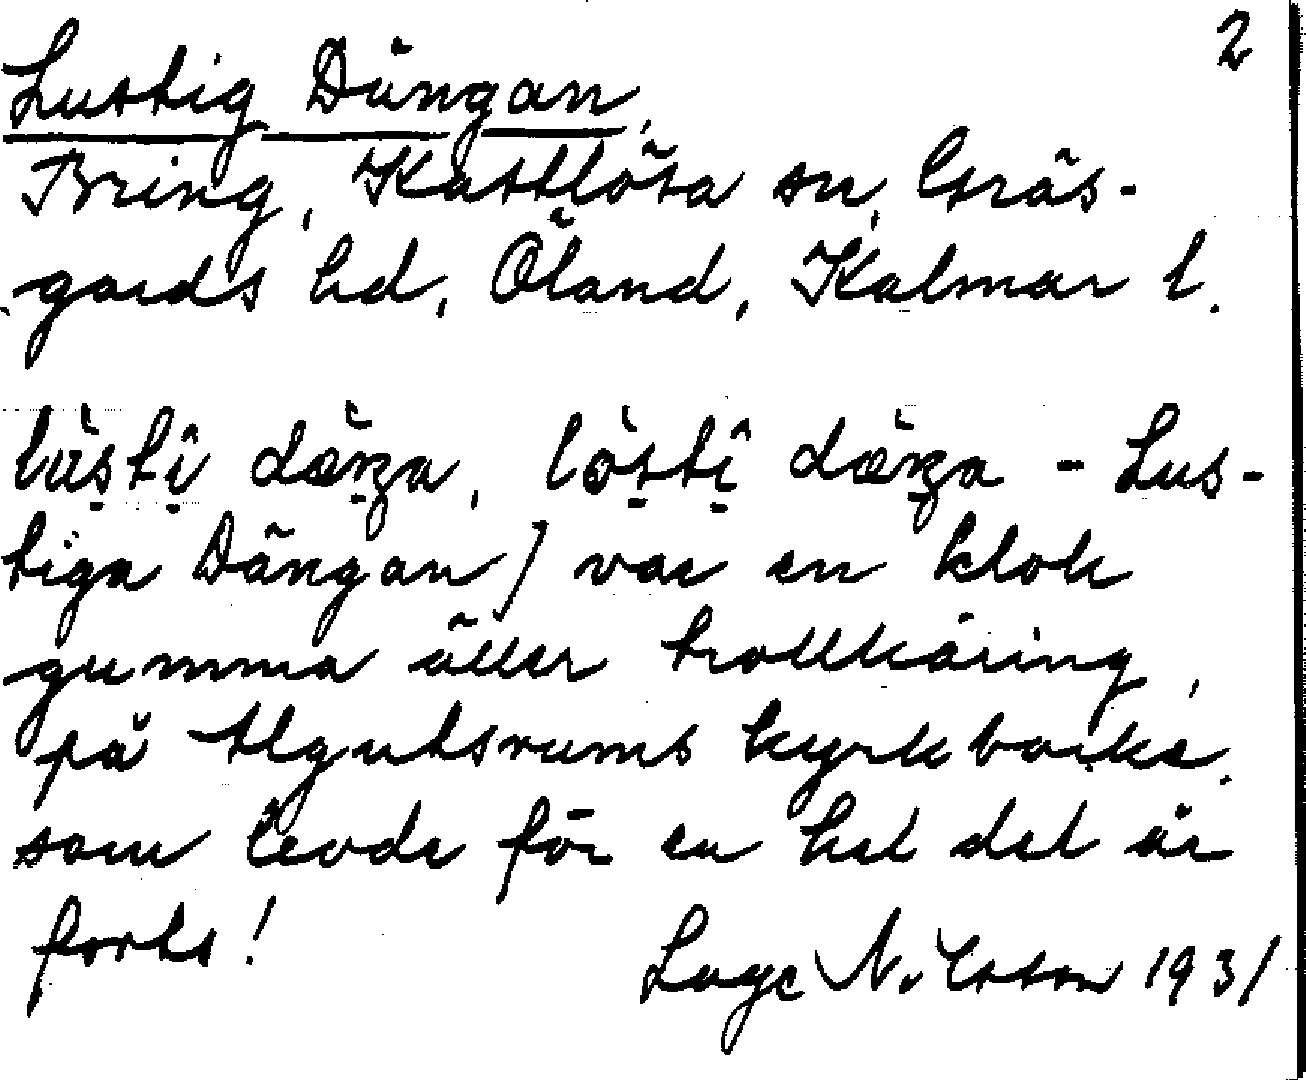 2
Lustig Dängan,
Bring, Kastlösa sn, Gräs-
gards hd, Öland, Kalmar l.
lùsti dä̀ŋa, lòsti dä̀ŋa - Lus-
tiga Dängan) var en klok
gumma äller trollkäring,
på Algutsrums kyrkbacke,
som levde för en hel del år

forts!
Lage Nilsson 1931